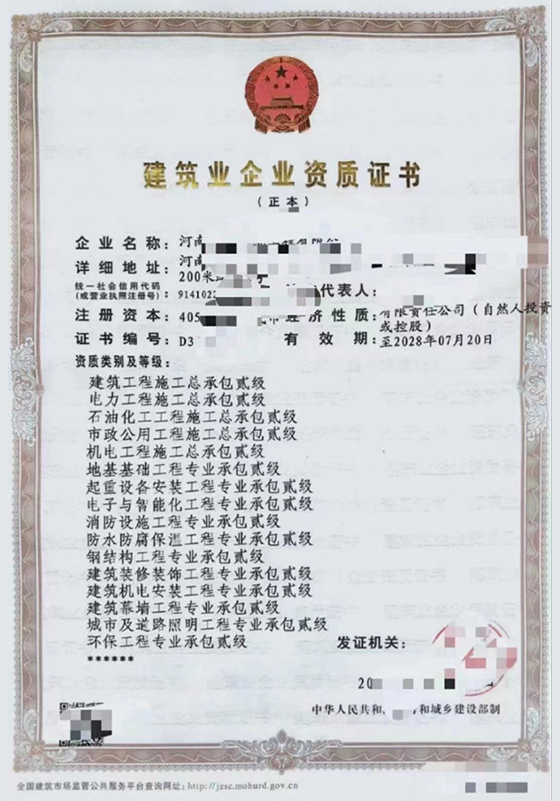 建筑业企业资质证书
（正本）
企业名称：河南
详细地址：河南
200米
统一社会信用代码
（或营业执照注册号）：9141022
代表人：
注册资本：405
经济性质：有限责任公司（自然人投资
或控股）
证书编号：D3
有效期：至2028年07月20日
资质类别及等级：
建筑工程施工总承包贰级
电力工程施工总承包贰级
石油化工工程施工总承包贰级
市政公用工程施工总承包贰级
机电工程施工总承包贰级
地基基础工程专业承包贰级
起重设备安装工程专业承包贰级
电子与智能化工程专业承包贰级
消防设施工程专业承包贰级
防水防腐保温工程专业承包贰级
钢结构工程专业承包贰级
建筑装修装饰工程专业承包贰级
建筑机电安装工程专业承包贰级
建筑幕墙工程专业承包贰级
城市及道路照明工程专业承包贰级
环保工程专业承包贰级
******
发证机关：
20
中华人民共和 和城乡建设部制
全国建筑市场监管公共服务平台查询网址：http://jzsc.mohurd.gov.cn